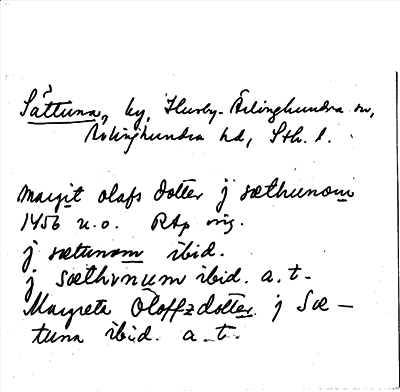 Såttuna, by, Husby-Ärlinghundra sn,
Ärlinghundra hd, Sth. l.
margit olafs dotter j sæthunom
1456 u.o. RAp orig.
j sætunom ibid.
j sæthvnum ibid. a. t.
Margreta Oloffzdotter j Sæ-
tuna ibid. a. t.